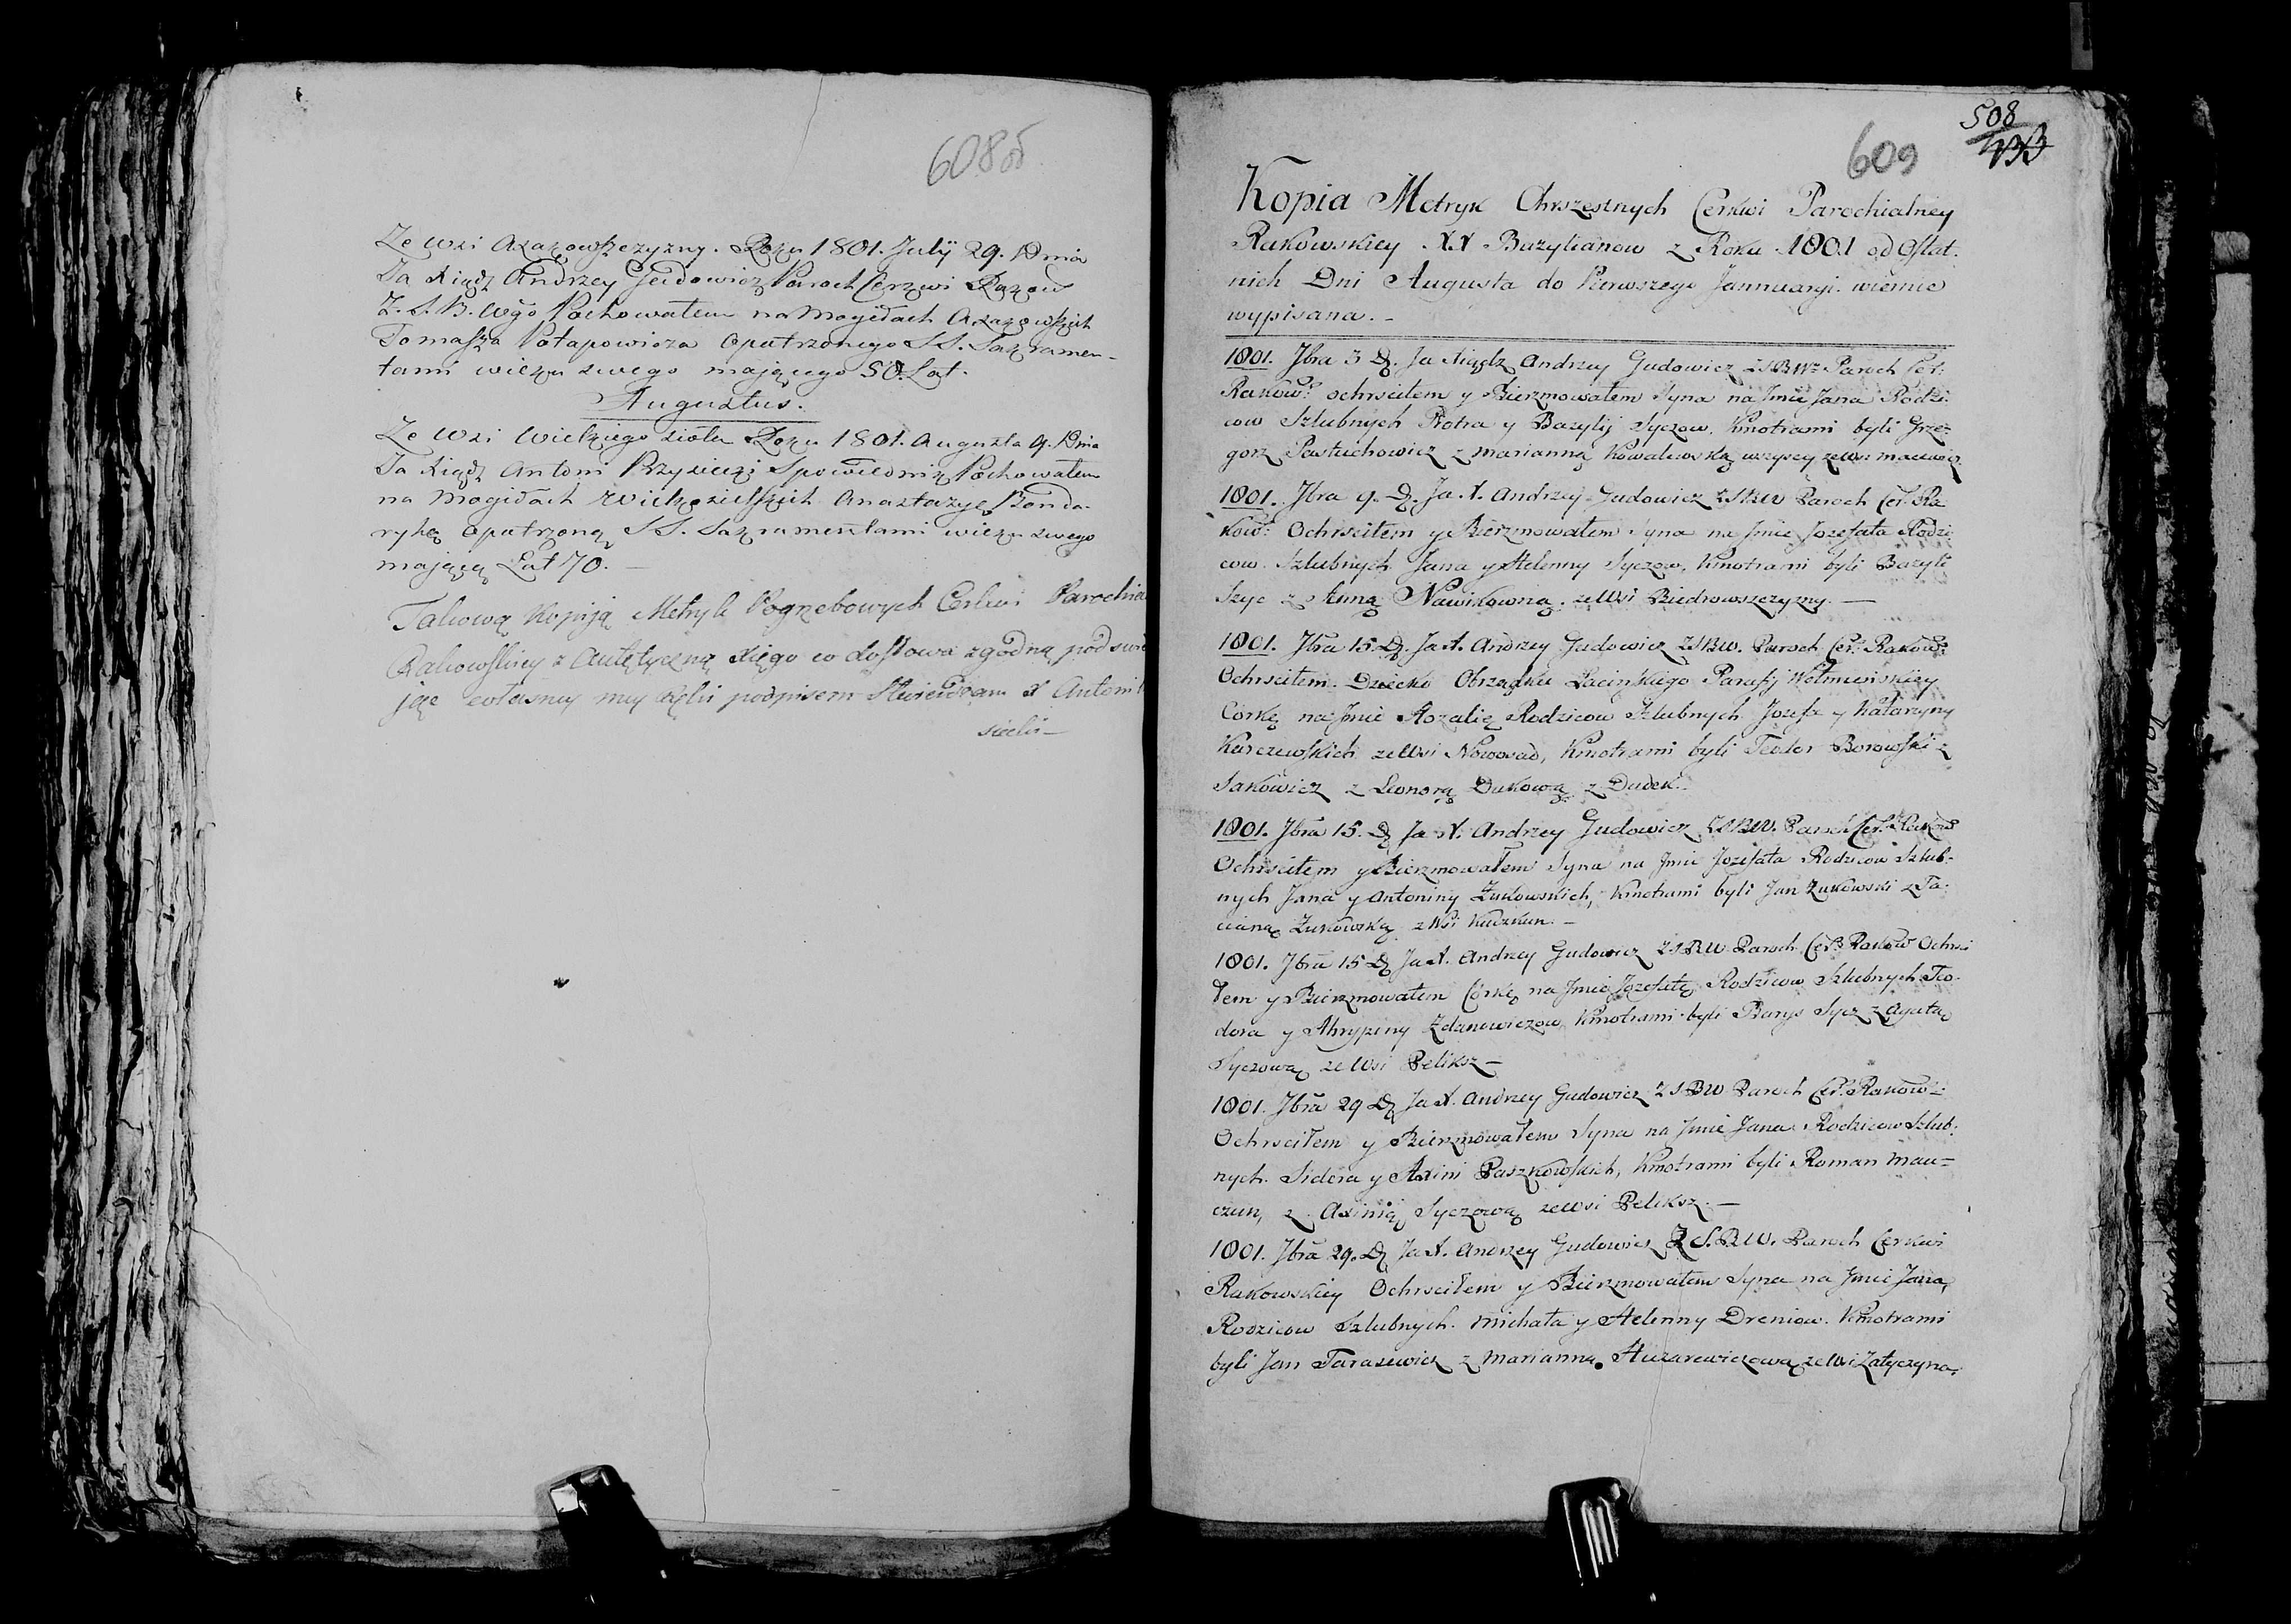 608об
Ze Wsi Arazowszczyzny. Roku 1801. Julij 29. Dnia
Ja Xiądz Andrzey Gudowicz Paroch Cerkwi Rakow
Z. S. B. Wgo Pochowałem na Mogiłach
Tomasza Potapowicza Opatrzonego SS. Sakramen-
tami wieku swego mającego 50. Lat.
Augustus.
Ze Wsi Wielkiego sioła Roku 1801. Augusta 9. Dnia
Ja Xiądz Antoni Spowiednik Pochowałem
na Mogiłach Wielkosielskich Anastazyę Bonda-
rykę opatrzoną SS. Sakramentami wieku swego
mającą Lat 70. —
Takową Kopiją Metryk Pogrzebowych Cerkwi Parochia
Rakowskiey z Autętyczną Xięgą co do słowa zgodną
własnej mey ręki podpisem Stwierdzam X Antoni
508
609
Kopia Metryk Chrzestnych Cerkwi Parochialney
Rakowskiey X.X Bazylianow z Roku 1801 od Ostat.
nich Dni Augusta do Pierwszego Jannuaryi wiernie
wypisana. -
1801. Jbra 3 D. Ja Xiądz Andrzey Gudowicz ZSBW Paroch Cer:
Rakow: ochrscitem y Bierzmowałem Syna na Jmie Jana Rodzi.
cow Szlubnych Piotra y Bazylij Syczow. Kmotrami byli Grze-
gorz Pastuchowicz z Marianną Kowalewską wszyscy ze Wsi
1801. Jbra 9. D. Ja X. Andrzey Gudowicz ZSBW Paroch Cer: Ra
kow: Ochrscitem y Bierzmowałem Syna na Jmie Jozefata Rodzi
cow Szlubnych Jana y Helenny Syczow, Kmotrami byli Bazyli
Szyc z Anną Nawikowną ze Wsi Biedrowszczyzny. —
1801. Jbra 15. D. Ja X. Andrzey Gudowicz ZSBW. Paroch Cer: Rakow:
Ochrscitem Dziecko Obrządku Łacińskiego Parafij
Corkę na Jmie Rozalię Rodzicow Szlubnych Jozefa y Katarzyny
Karczewskich ze Wsi Nowosad, Kmotrami byli Teodor Borowski z
Sakowicz z Leonorą Dukową z Dudek.
1801. Jbra 15. D. Ja X. Andrzey Gudowicz ZSBW. Paroch Cer: Rakow
Ochrscitem y Bierzmowałem Syna na Jmie Jozefata Rodzicow Szlub-
nych Jana y Antoniny Żukowskich, Kmotrami byli Jan Żukowski z Ta-
cianą Żukowską z Wsi Kuczkun. —
1801. Jbra 15 D. Ja X. Andrzey Gudowicz ZSBW Paroch Cer: Rakow Ochrsci
łem y Bierzmowałem Corkę na Jmie Jozefatę Rodzicow Szlubnych Teo-
dora y Ahrypiny Zdanowiczow Kmotrami byli Barys Sycz z Agatą
Syczową ze Wsi Peliksz —
1801. Jbra 29 D. Ja X. Andrzey Gudowicz ZSBW Paroch Cer: Rakow:
Ochrscitem y Bierzmowałem Syna na Jmie Jana Rodzicow Szlub-
nych Sidora y Axini Paszkowskich, Kmotrami byli Roman Mau-
czun, z Axinią Syczową ze Wsi Peliksz. —
1801. Jbra 29. D. Ja X. Andrzey Gudowicz Z S.B.W. Paroch Cerkwi
Rakowskiey Ochrscitem y Bierzmowałem Syna na Jmie Jana,
Rodzicow Szlubnych Michała y Helenny Dreniow. Kmotrami
byli Jan Tarasewicz z Marianną Huzarewiczową ze Wsi